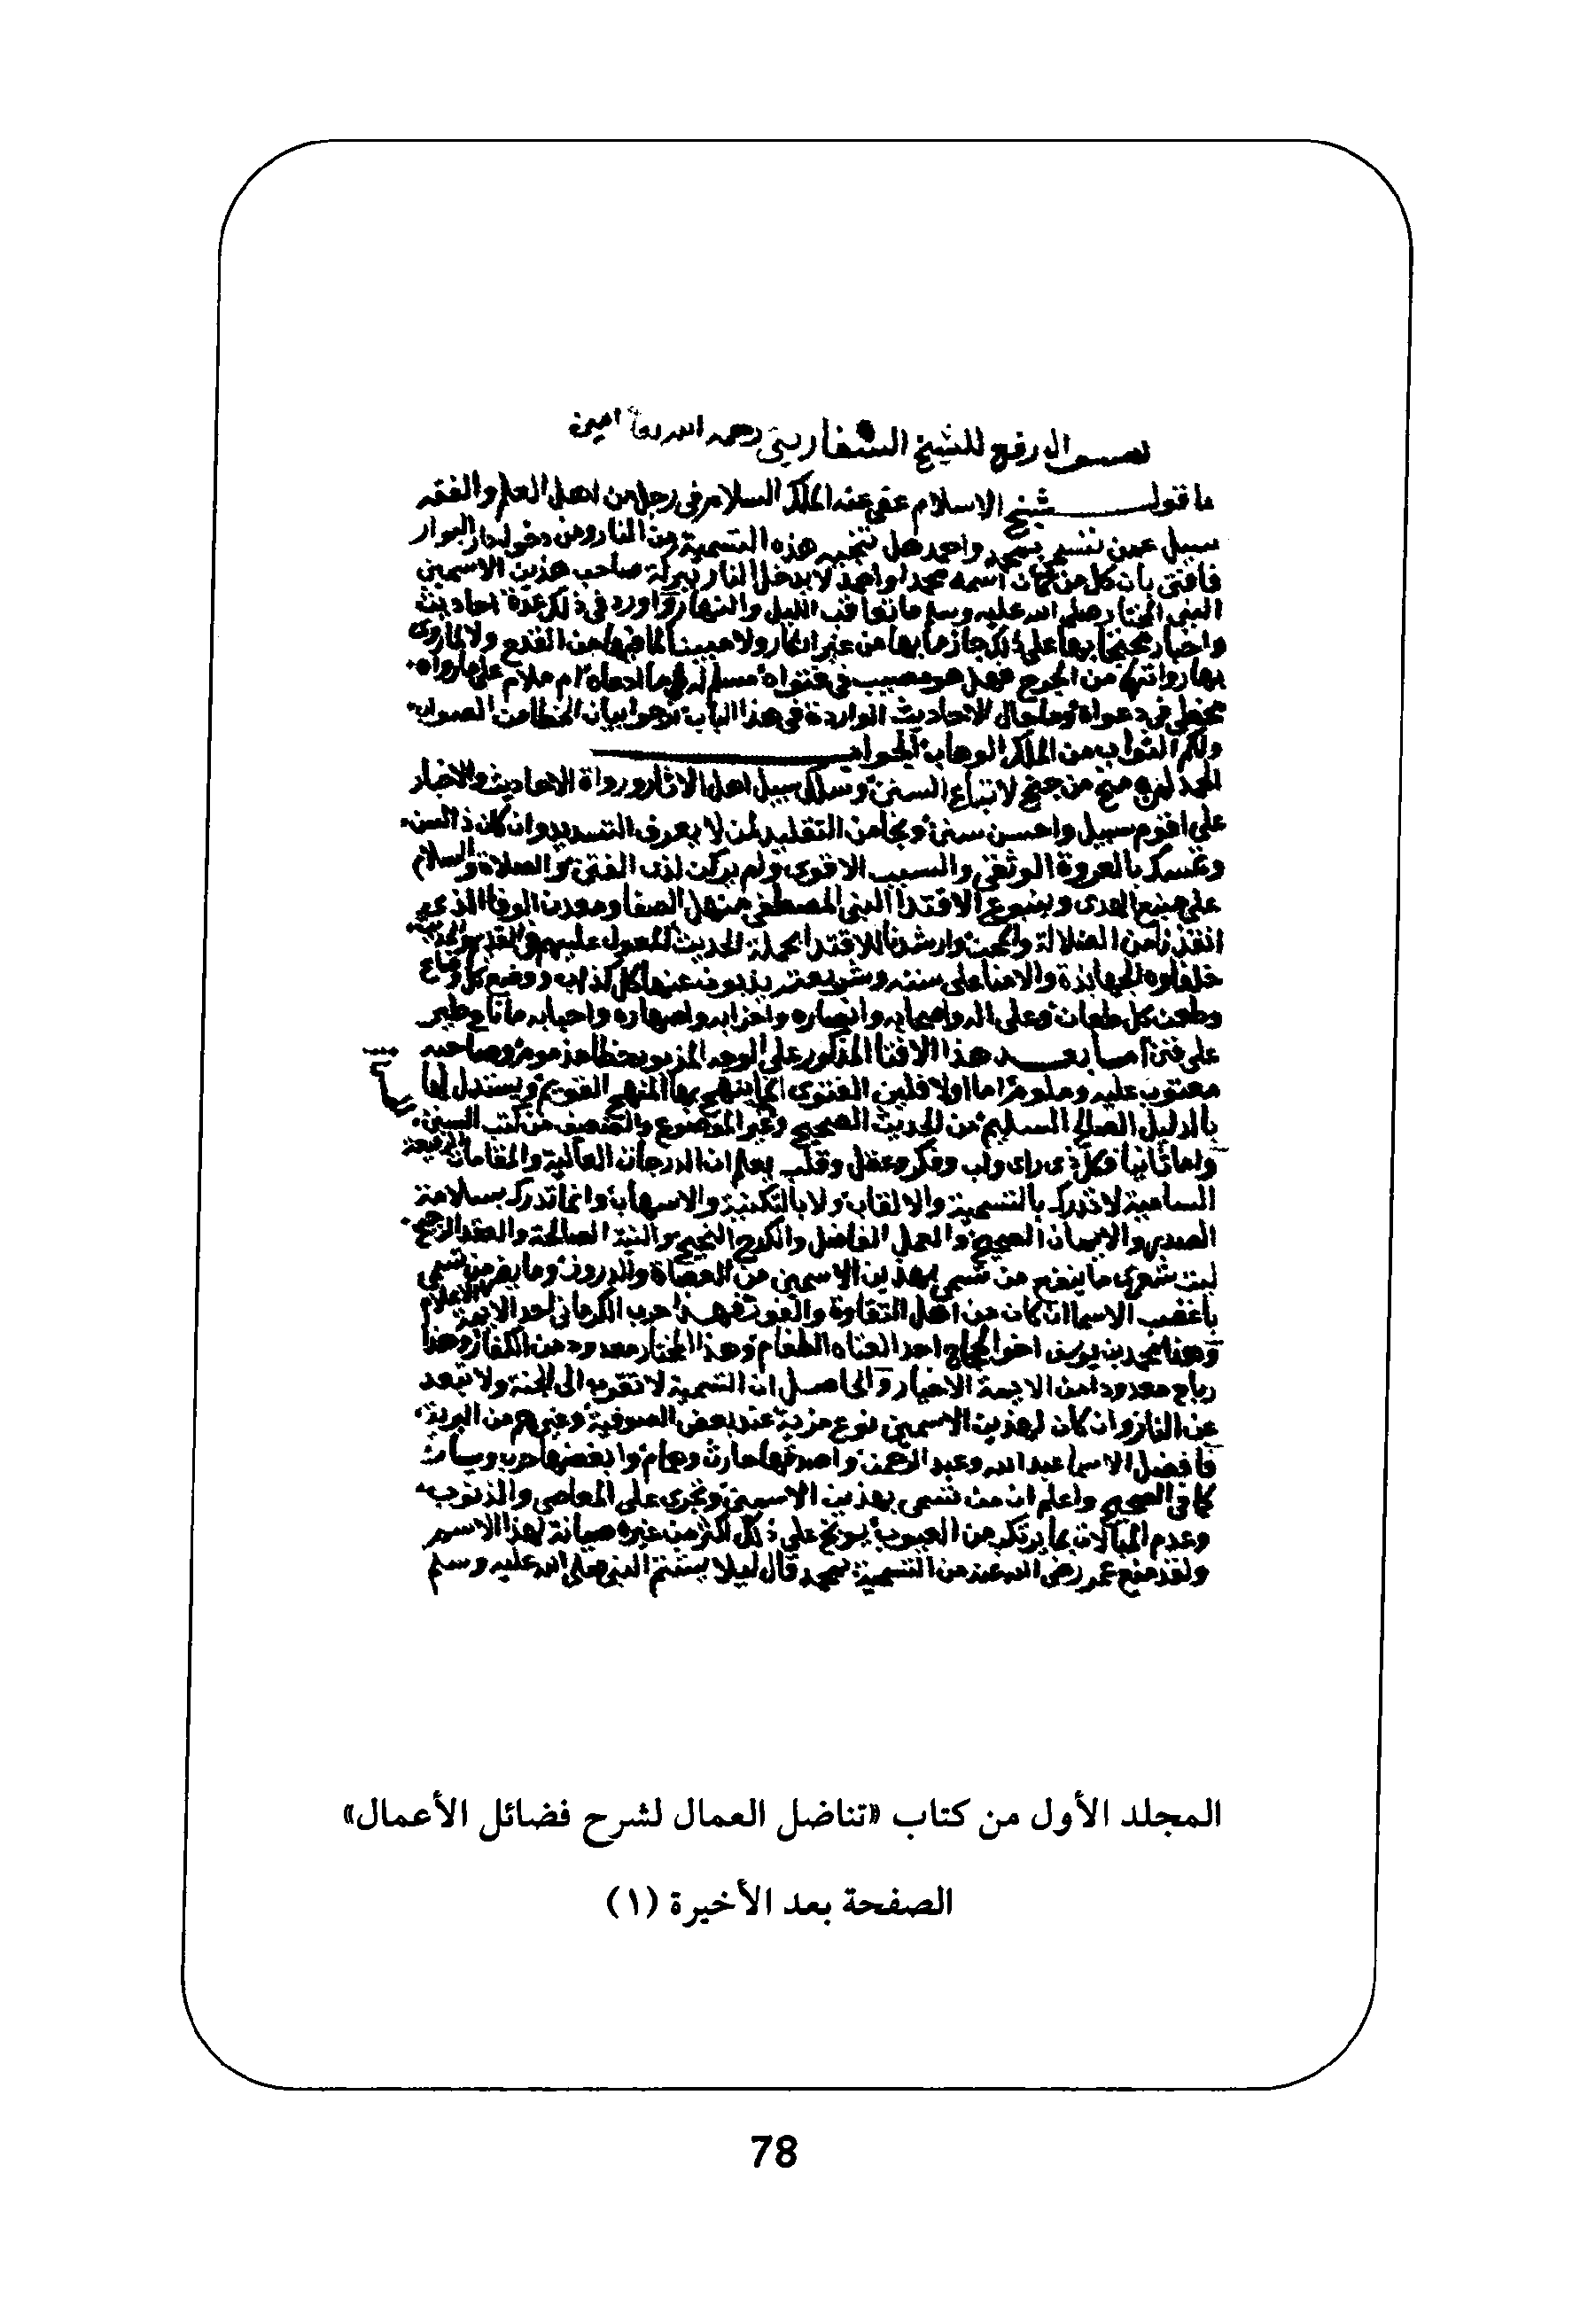 رفع للشيخ السفاريني رحمه الله تعالى امين
ما قول شيخ الاسلام عفى عنه الملك السلام في رجل من اهل العلم والفقه
سئل عمن تسمى بمحمد واحمد هل تنجيه هذه التسمية من النار ومن دخوله دار البوار
فافتى بان كل من كان اسمه محمد او احمد لا يدخل النار ببركة صاحب هذين الاسمين
النبي المختار صلى الله عليه وسلم ما تعاقب الليل والنهار واورد في ذلك عدة احاديث
واخبار محتجا بها على ذلك جازما بها من غير انكار ولا مبينا لما فيها من القدح ولا لما روى
بها رواتها من الجرح فهل هو مصيب في فتواه مسلم له ما ادعاه ام ملام على ما رواه
مخطي في دعواه وما حال الاحاديث الواردة في هذا الباب نرجوا بيان الخطا من الصواب
ولكم الثواب من الملك الوهاب الجواب
الحمد لمن منح من جنح لاتباع السنن وسلك سبيل اهل الاثار ورواة الاحاديث والاخبار
على اقوم سبيل واحسن سنن ونجا من التقليد لمن لا يعرف التسديد وان كان ذا لسن
وتمسك بالعروة الوثقى والسبب الاقوى ولم يركن لذى الفتن والصلاة والسلام
على منبع الهدى وينبوع الاقتدا النبي المصطفى منهل الصفا ومعدن الوفا الذي
انقذنا من الضلالة والمحن وارشدنا للاقتدا بحملة الحديث المعول عليهم في القديم والحديث
خلفاوه الجهابذة والامنا على سنته وشريعته يذبون عنها كل كذاب ووضع كل وضاع
وطعن كل طعان وعلى اله واصحابه وانصاره واحزابه واصهاره واحبابه ما ناح طير
على فنن اما بعد هذا الافتا المذكور على الوجه المزبور خطا مذموم وصاحبه
معتوب عليه وملوم اما اولا فلين الفتوى انما ينهج بها المنهج القويم ويستدل لها
بالدليل الصالح السليم من الحديث الصحيح وغير الموضوع والضعيف من كتب السنن
واما ثانيا فكل ذى راى ولب وفكر وعقل وقلب يعلم ان الدرجات العالية والمقامات الرفيعة
السامية لا تدرك بالتسمية والالقاب ولا بالتكنية والاسهاب وانما تدرك بسلامة
الصدر والايمان الصحيح والعمل الفاضل والكدح النجيح والنية الصالحة والعقد الرجيح
ليت شعرى ما ينفع من تسمى بهذين الاسمين من العصاة والدرون وما يضر من تسمى
باغضب الاسما ان كان من اهل التقاوة والعون فهذا حرب الكرماني احد الايمة الاعلام
وهذا محمد بن يوسف اخو الحجاج احد العتاه الطغام وهذا المختار معدود من الكفار وهذا
رباح معدود من الايمة الاخيار والحاصل ان التسمية لا تقرب الى الجنة ولا تبعد
عن النار وان كان لهذين الاسمين نوع مزية عند بعض الصوفية وغيرهم من البرية
فافضل الاسما عبد الله وعبد الرحمن واصدقها حارث وهمام وابغضها حرب
كما في الصحيح واعلم ان من تسمى بهذين الاسمين وتجرى على المعاصي والذنوب
وعدم المبالات بما يرتكب من العيوب يوبخ على ذلك اكثر من غيره صيانة لهذا الاسم
ولقد منع عمر رضى الله عنه من التسمية بمحمد قال ليلا يشتم النبي صلى الله عليه وسلم
المجلد الأول من كتاب «تناضل العمال لشرح فضائل الأعمال»
الصفحة بعد الأخيرة (١)
78